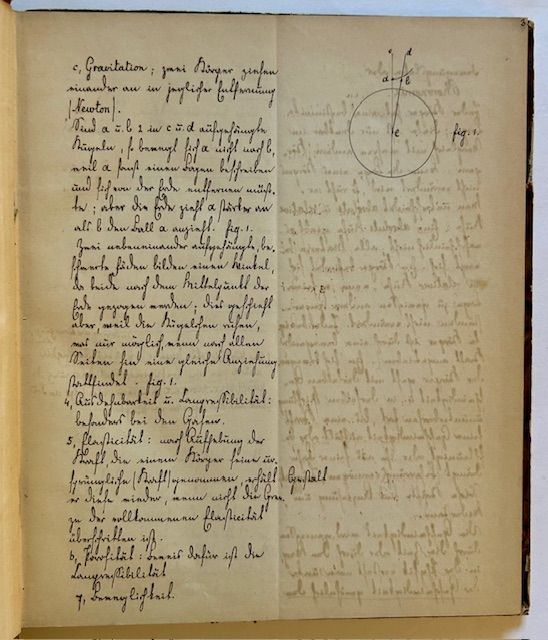 3
c, Gravitation; zwei Körper ziehen
einander an in jeglicher Entfernung
(Newton).
Sind a u. b 2 in c u. d aufgehängte
Kugeln, so bewegt sich a nicht nach b,
weil a sonst einen Bogen beschreiben
und sich von der Erde entfernen müß-
te; aber die Erde zieht a stärker an
als b den Ball a anzieht. fig. 1.
Zwei nebeneinander aufgehängte, be-
schwerte Fäden bilden einen Winkel,
da beide nach dem Mittelpunkt der
Erde gezogen werden; dies geschieht
aber, weil die Kügelchen ruhen,
was nur möglich, wenn nach allen
Seiten hin eine gleiche Anziehung
stattfindet. fig. 1.
4, Ausdehnbarkeit u. Compressibilität:
besonders bei den Gasen.
5, Elasticität: nach Aufhebung der
Kraft, die einem Körper seine ur-
sprüngliche (Kraft) genommen, erhält Gestalt
er diese wieder, wenn nicht die Gren-
ze der vollkommenen Elasticität
überschritten ist.
6, Porosität: Beweis dafür ist die
Compressibilität
7, Beweglichkeit.
c d
a b
e
fig. 1.